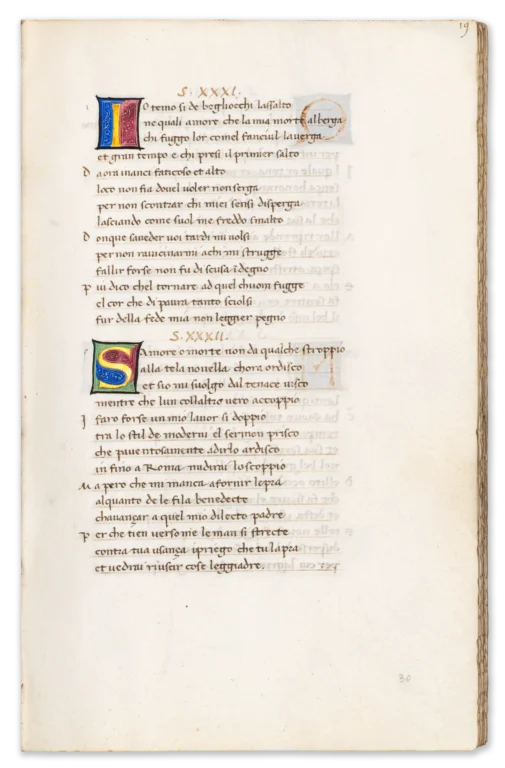 19
S. XXXI.
IO temo si de begliocchi lassalto
ne quali amore che la mia morte alberga
chi fuggo lor comel fanciul la verga
et gran tempo e chi presi il primier salto
D aora inanci faticoso et alto
loco non fia dovel voler non serga
per non scontrar chi miei sensi disperga
lasciando come suol me freddo smalto
D onque saveder voi tardi mi volsi
per non ravicinarmi achi mi strugge
fallir forse non fu di scusa idegno
P iu dico chel tornare ad quel chuom fugge
el cor che di paura tanto sciolsi
fur della fede mia non leggier pegno
S. XXXII.
S Amore o morte non da qualche stroppio
alla tela novella chora ordisco
et sio mi svolgo dal tenace visco
mentre che lun collaltro vero accoppio
I faro forse un mio lavor si doppio
tra lo stil de moderni el sermon prisco
che paventosamente adirlo ardisco
in fino a Roma nudirai lo scoppio
M a pero che mi manca afornir lopra
alquanto de le fila benedecte
chavançar a quel mio dilecto padre
P er che tien verso me le man si strecte
contra tua usança i priego che tu lapra
et vedrai riuscir cose leggiadre.
30